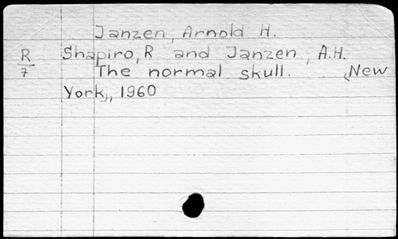 Janzen, Arnold H.
R Shapiro, R and Janzen, A.H.
7 The normal skull. New
York, 1960